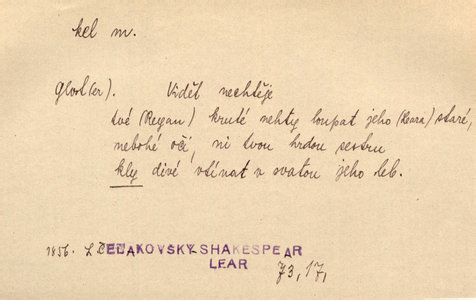 kel m.
Glost(er). Vidět nechtěje
tvé (Regan) kruté nehty loupat jeho (Leara) staré,
nebohé oči, ni tvou hrdou sestru
kly divé vtínat v svatou jeho leb.
1856. L ČELAKOVSKY-SHAKESPEAR
LEAR
73, 17,